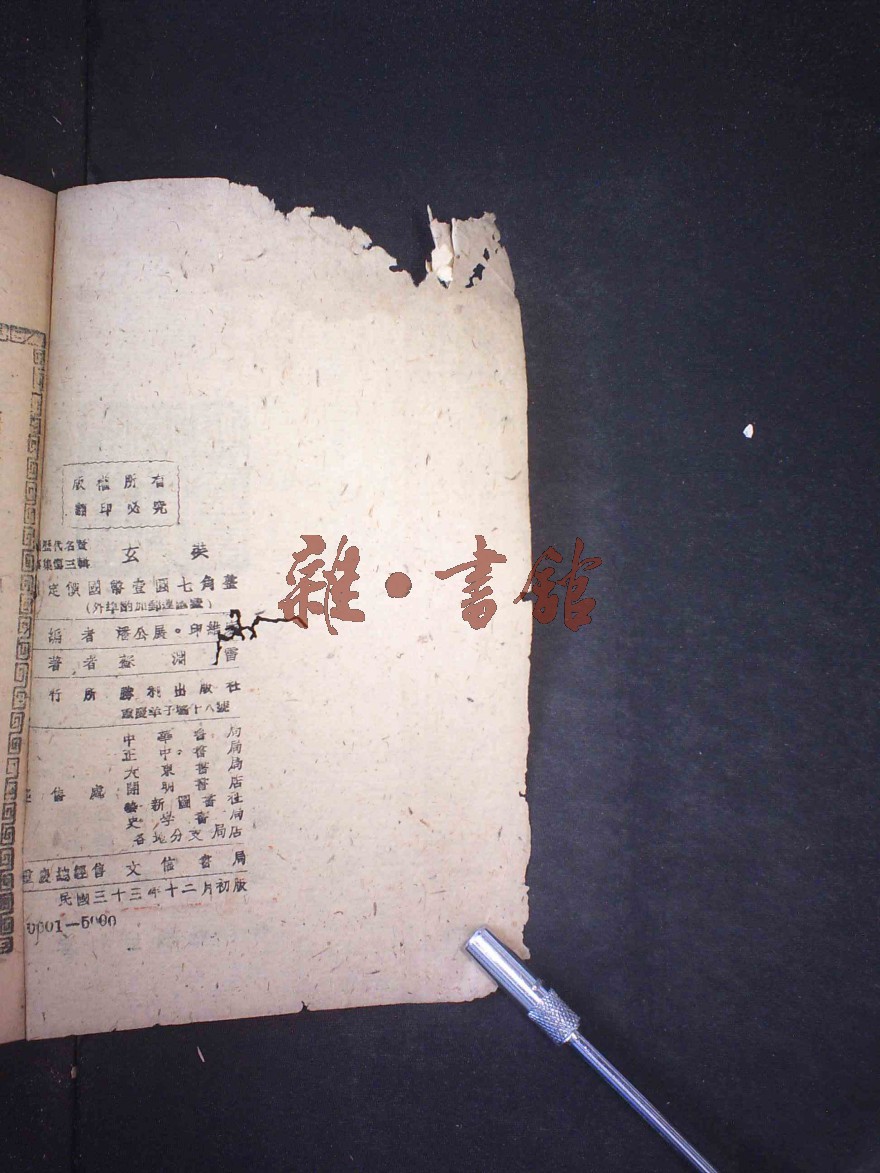 版權所有
翻印必究
歷代名賢
集第三輯
玄奘
定價國幣壹圓七角整
(外埠酌加郵運匯費)
編者 潘公展。印維
著者 蘇淵雷
行所 勝利出版社
重慶草子壩十八號
中華書局
正中書局
大東書局
售處 開明書店
新圖書社
史學書局
各地分支局店
重慶總經售 文信書局
民國三十三年十二月初版
0001—5000
雜·書館